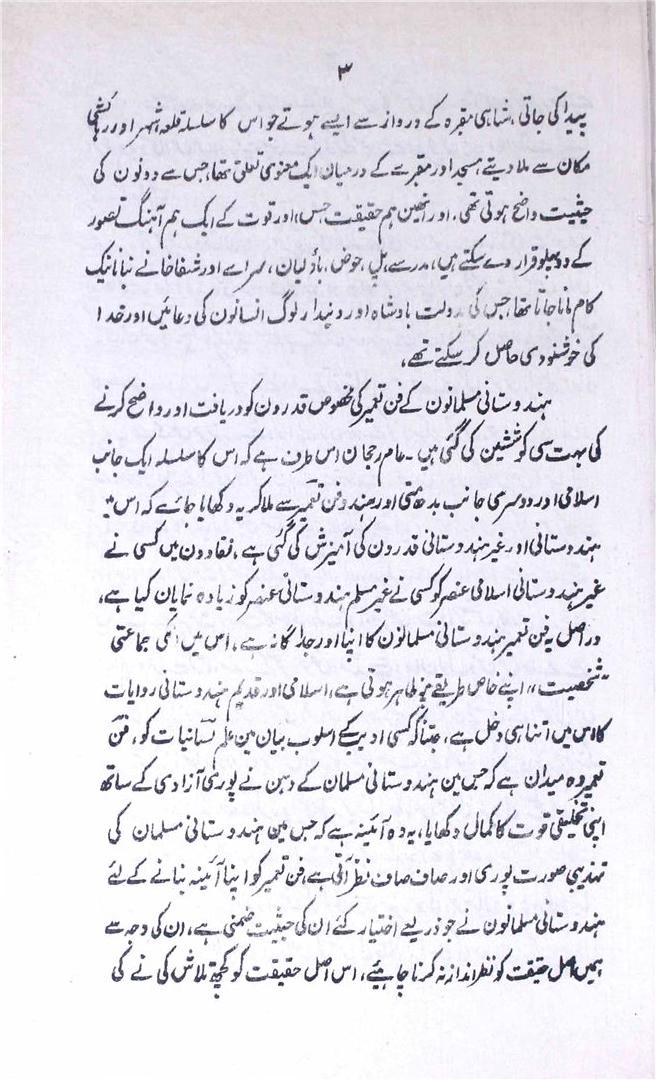 ۳
پیدا کی جاتی، شاہی مقبرہ کے دروازے ایسے ہوتے جو اس کا سلسلہ قلعہ، شہر اور رہائشی
مکان سے ملا دیتے، مسجد اور مقبرے کے درمیان ایک معنوی تعلق تھا، جس سے دونون کی
حیثیت واضح ہوتی تھی، اور انھین ہم حقیقت حس، اور قوت کے ایک ہم آہنگ تصور
کے دو پہلو قرار دے سکتے ہیں، مدرسے، پل، حوض، باؤلیان، سرائے اور شفاخانے بنانا نیک
کام مانا جاتا تھا، جس کی بدولت بادشاہ اور دیندار لوگ انسانون کی دعائیں اور خدا
کی خوشنودی حاصل کر سکتے تھے،
ہندوستانی مسلمانون کے فن تعمیر کی مخصوص قدرون کو دریافت اور واضح کرنے
کی بہت سی کوششین کی گئی ہیں۔ عام رجحان اس طرف ہے کہ اس کا سلسلہ ایک جانب
اسلامی اور دوسری جانب بدھ متی اور ہندو فن تعمیر سے ملا کر یہ دکھایا جائے کہ اس میں
ہندوستانی اور غیر ہندوستانی قدرون کی آمیزش کی گئی ہے، نقادون میں کسی نے
غیر ہندوستانی اسلامی عنصر کو کسی نے غیر مسلم ہندوستانی عنصر کو زیادہ نمایان کیا ہے،
در اصل یہ فن تعمیر ہندوستانی مسلمانون کا اپنا اور جداگانہ ہے، اس میں انکی جماعتی
"شخصیت" اپنے خاص طریقے پر ظاہر ہوتی ہے، اسلامی اور قدیم ہندوستانی روایات
کا اس میں اتنا ہی دخل ہے، جتنا کہ کسی ادیب کے اسلوب بیان مین علم لسانیات کو، فن
تعمیر وہ میدان ہے کہ جس مین ہندوستانی مسلمان کے ذہن نے پوری آزادی کے ساتھ
اپنی تخلیقی قوت کا کمال دکھایا، یہ وہ آئینہ ہے کہ جس مین ہندوستانی مسلمان کی
تہذیبی صورت پوری اور صاف صاف نظر آتی ہے، فن تعمیر کو اپنا آئینہ بنانے کے لئے
ہندوستانی مسلمانون نے جو ذریعے اختیار کئے ان کی حیثیت ضمنی ہے، ان کی وجہ سے
ہمیں اصل حقیقت کو نظر انداز نہ کرنا چاہیئے، اس اصل حقیقت کو کچھ تلاش کی نے کی